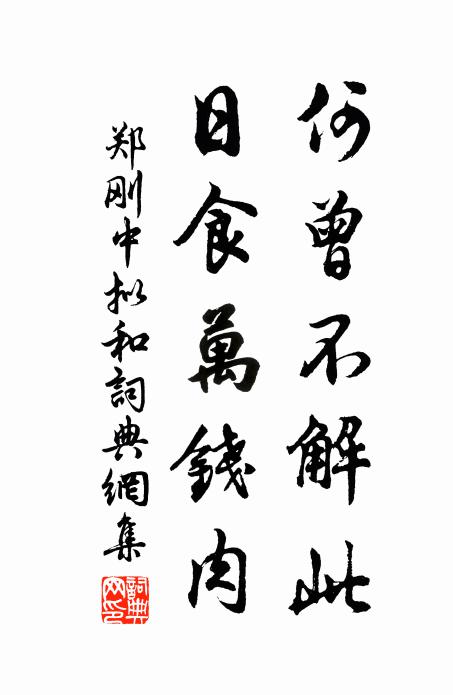 何曾不解此
日食萬錢肉
郑刚中拟和詞典網集
詞典网印